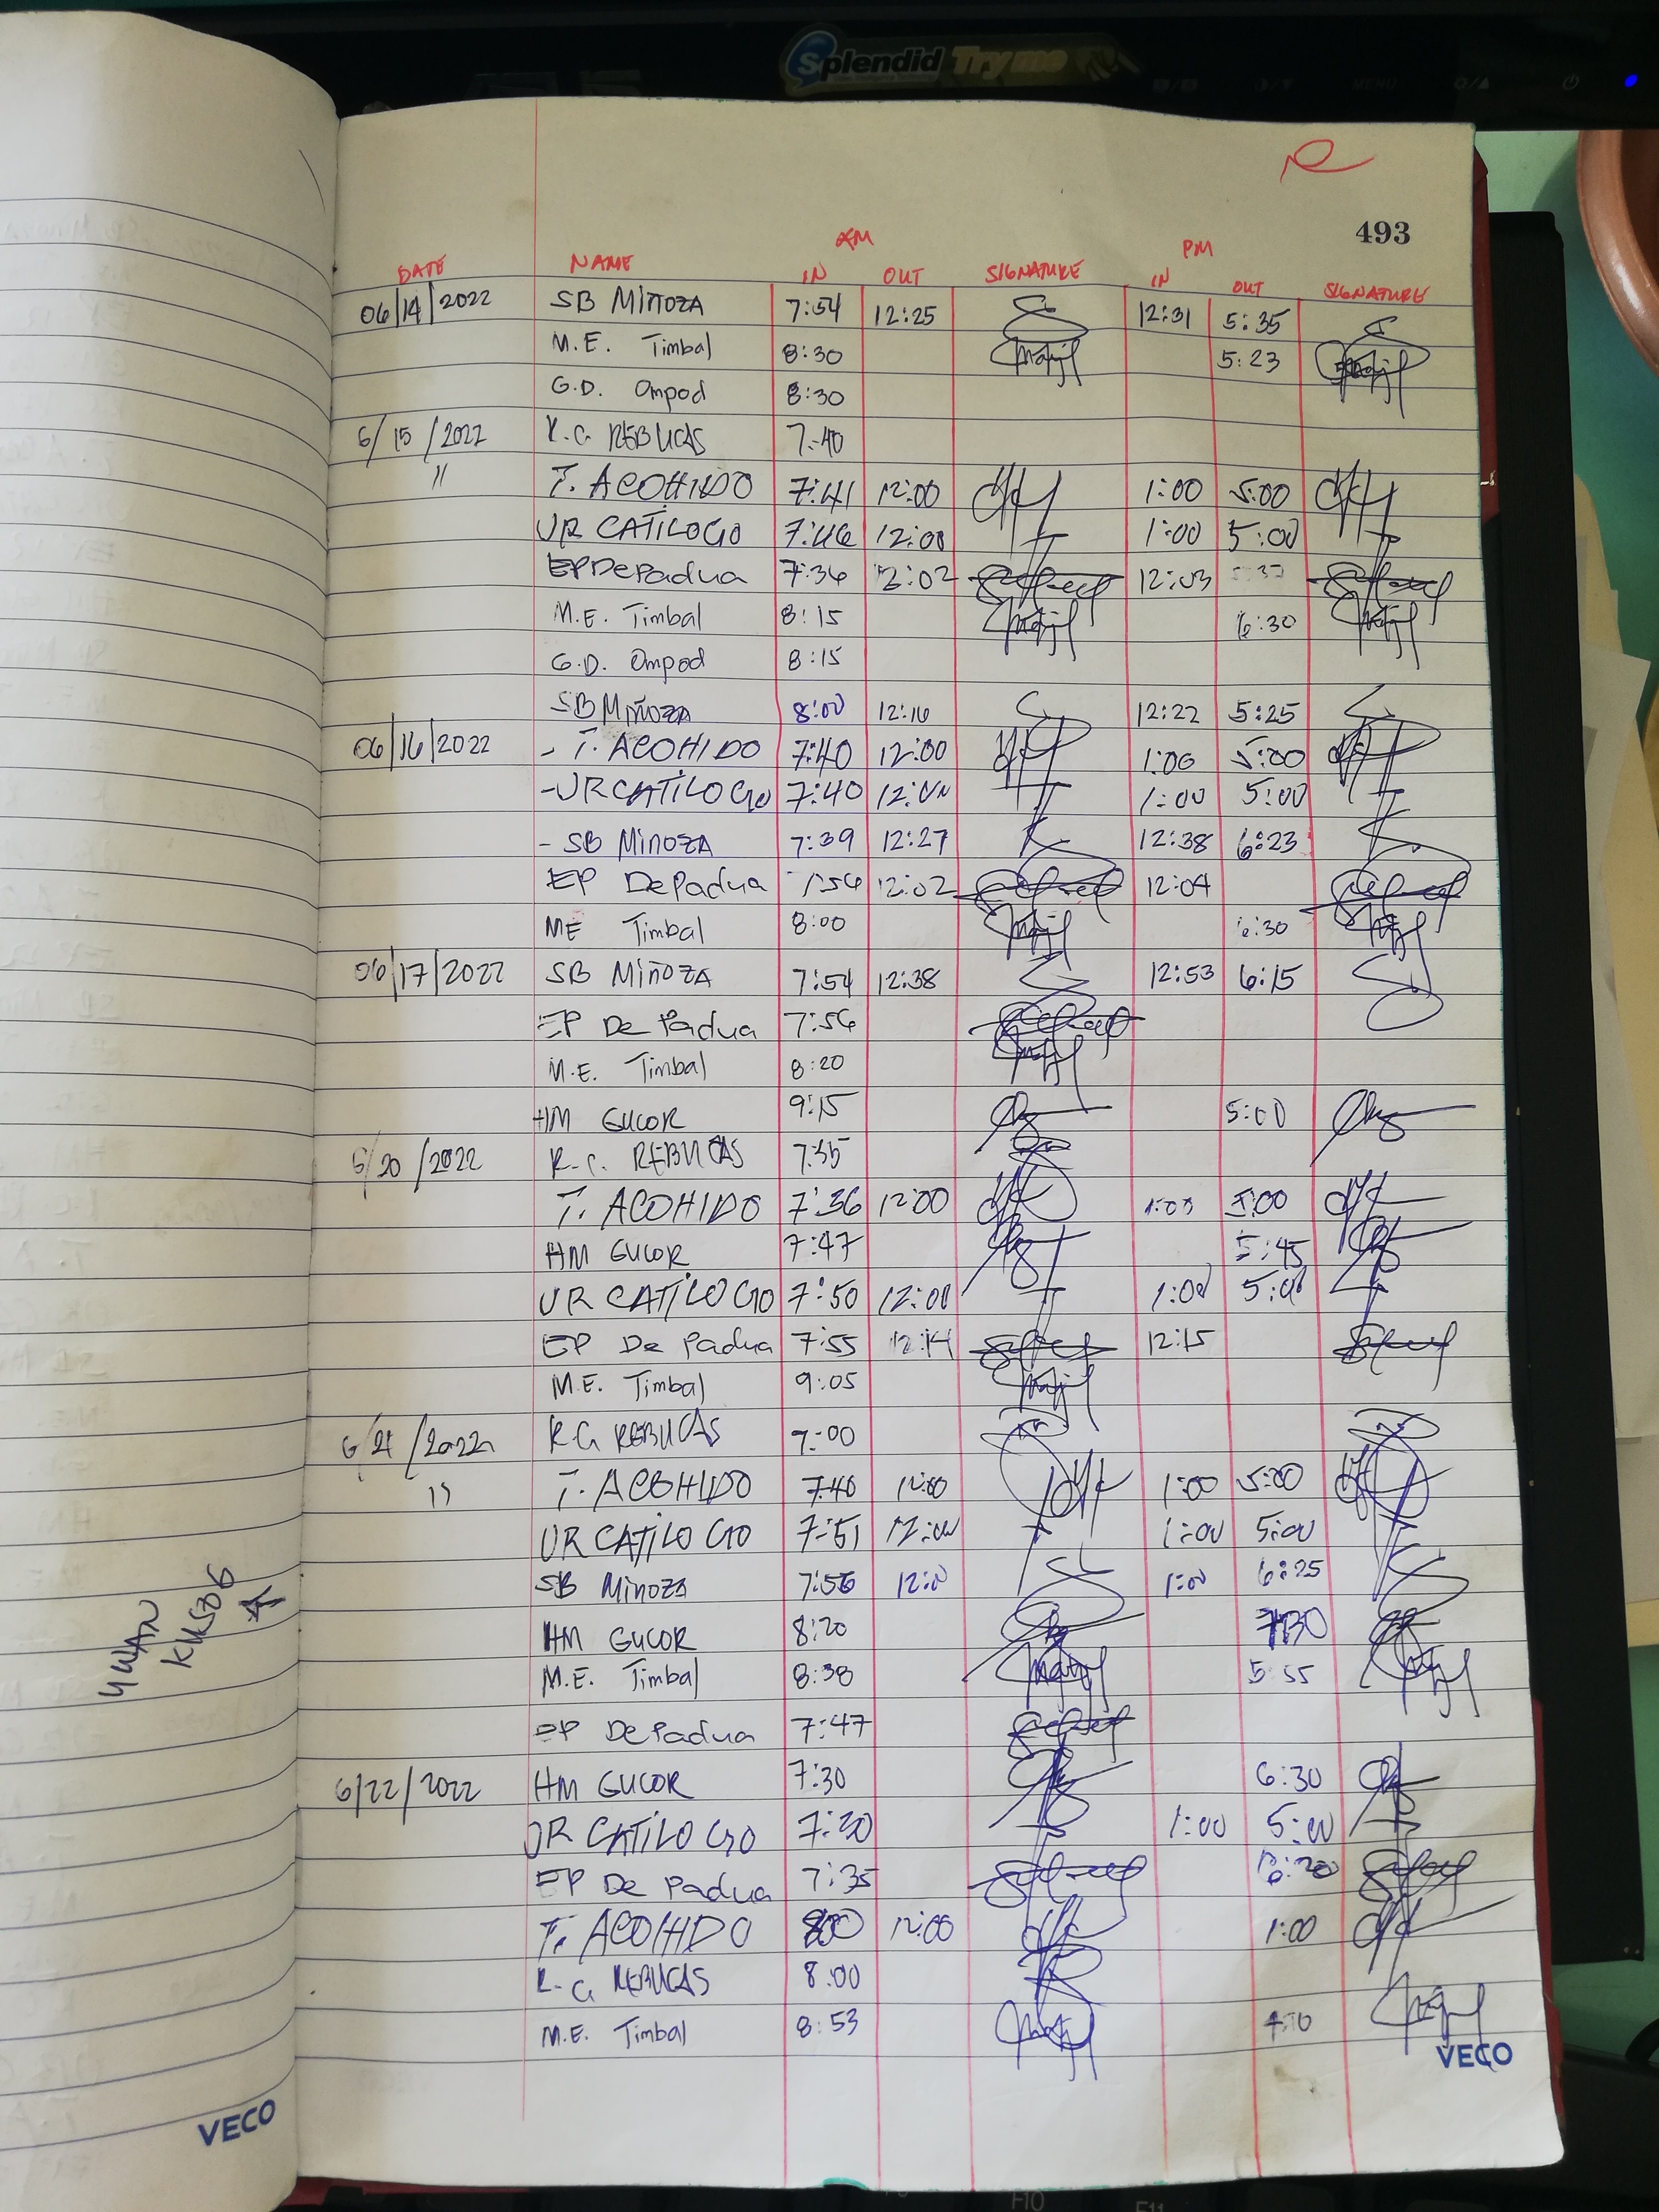 Splendid Try me
MENU
493
AM PM
DATE NAME IN OUT SIGNATURE IN OUT SIGNATURE
06/14/2022 SB MIÑOZA 7:54 12:25 12:31 5:35
M.E. Timbal 8:30 5:23
G.D. Ompod 8:30
6/15/2022 R.G REBUCAS 7:40
" T. ACOHIDO 7:41 12:00 1:00 5:00
JR CATILOGO 7:46 12:00 1:00 5:00
EP De Padua 7:36 12:02 12:03
M.E. Timbal 8:15 6:30
G.D. Ompod 8:15
SB MIÑOZA 8:00 12:16 12:22 5:25
06/16/2022 - T. ACOHIDO 7:40 12:00 1:00 5:00
- JR CATILOGO 7:40 12:00 1:00 5:00
- SB MIÑOZA 7:39 12:27 12:38 6:23
EP De Padua 7:56 12:02 12:04
ME Timbal 8:00 6:30
06/17/2022 SB MIÑOZA 7:54 12:38 12:53 6:15
EP De Padua 7:56
M.E. Timbal 8:20
HM GUCOR 9:15 5:00
6/20/2022 R.G. REBUCAS 7:35
T. ACOHIDO 7:36 12:00 1:00 5:00
HM GUCOR 7:47 5:45
JR CATILOGO 7:50 12:00 1:00 5:00
EP De Padua 7:55 12:14 12:15
M.E. Timbal 9:05
6/21/2022 R.G REBUCAS 7:00
" T. ACOHIDO 7:40 12:00 1:00 5:00
JR CATILOGO 7:51 12:00 1:00 5:00
SB MIÑOZA 7:56 12:00 1:00 6:25
HM GUCOR 8:20 7:30
M.E. Timbal 8:38 5:55
EP De Padua 7:47
6/22/2022 HM GUCOR 7:30 6:30
JR CATILOGO 7:20 1:00 5:00
EP De Padua 7:35
T. ACOHIDO 800 12:00 1:00
R.G REBUCAS 8:00
M.E. Timbal 8:53
VECO
VECO
F10
F11